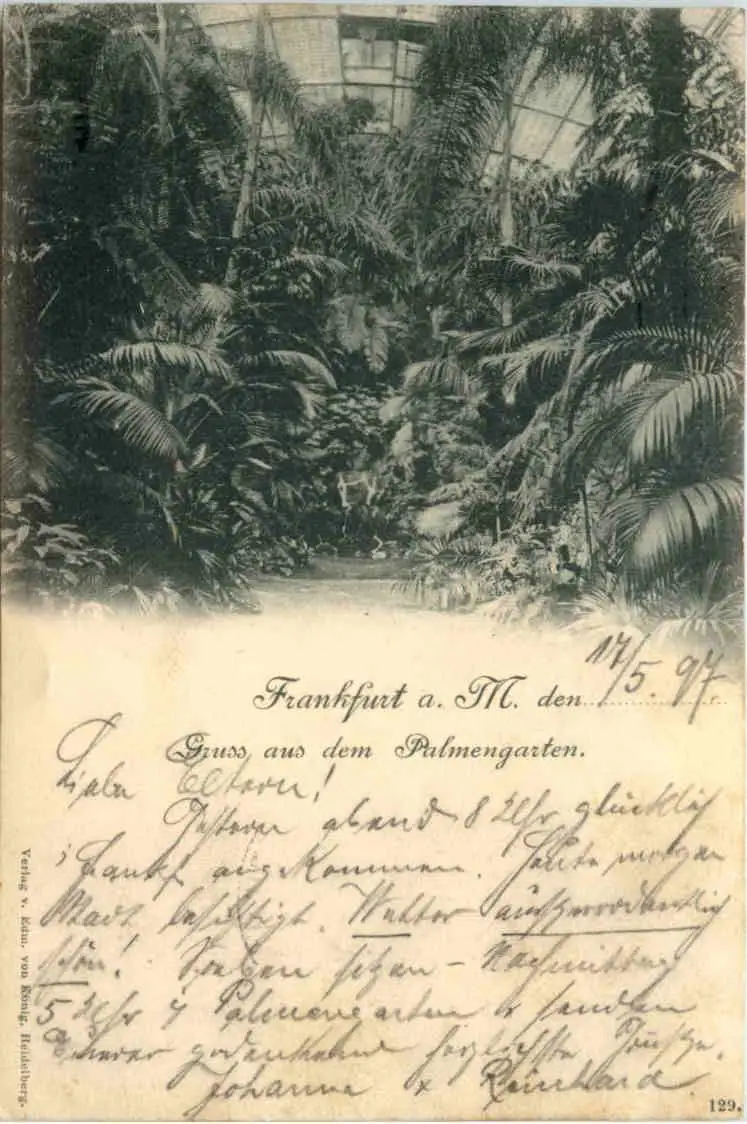 Frankfurt a. M. den 17/5. 97.
Gruss aus dem Palmengarten.
Liebe Eltern!
Gestern abend 8 Uhr glücklich
i/ Frankf angekommen. Heute morgen
Stadt besichtigt. Wetter außerordentlich
schön! Soeben sitzen – Nachmittag
5 Uhr i/ Palmengarten & senden
Eurer gedenkend herzlichste Grüße.
Johanna & Reinhard
Verlag v. Edm. von König, Heidelberg.
129.